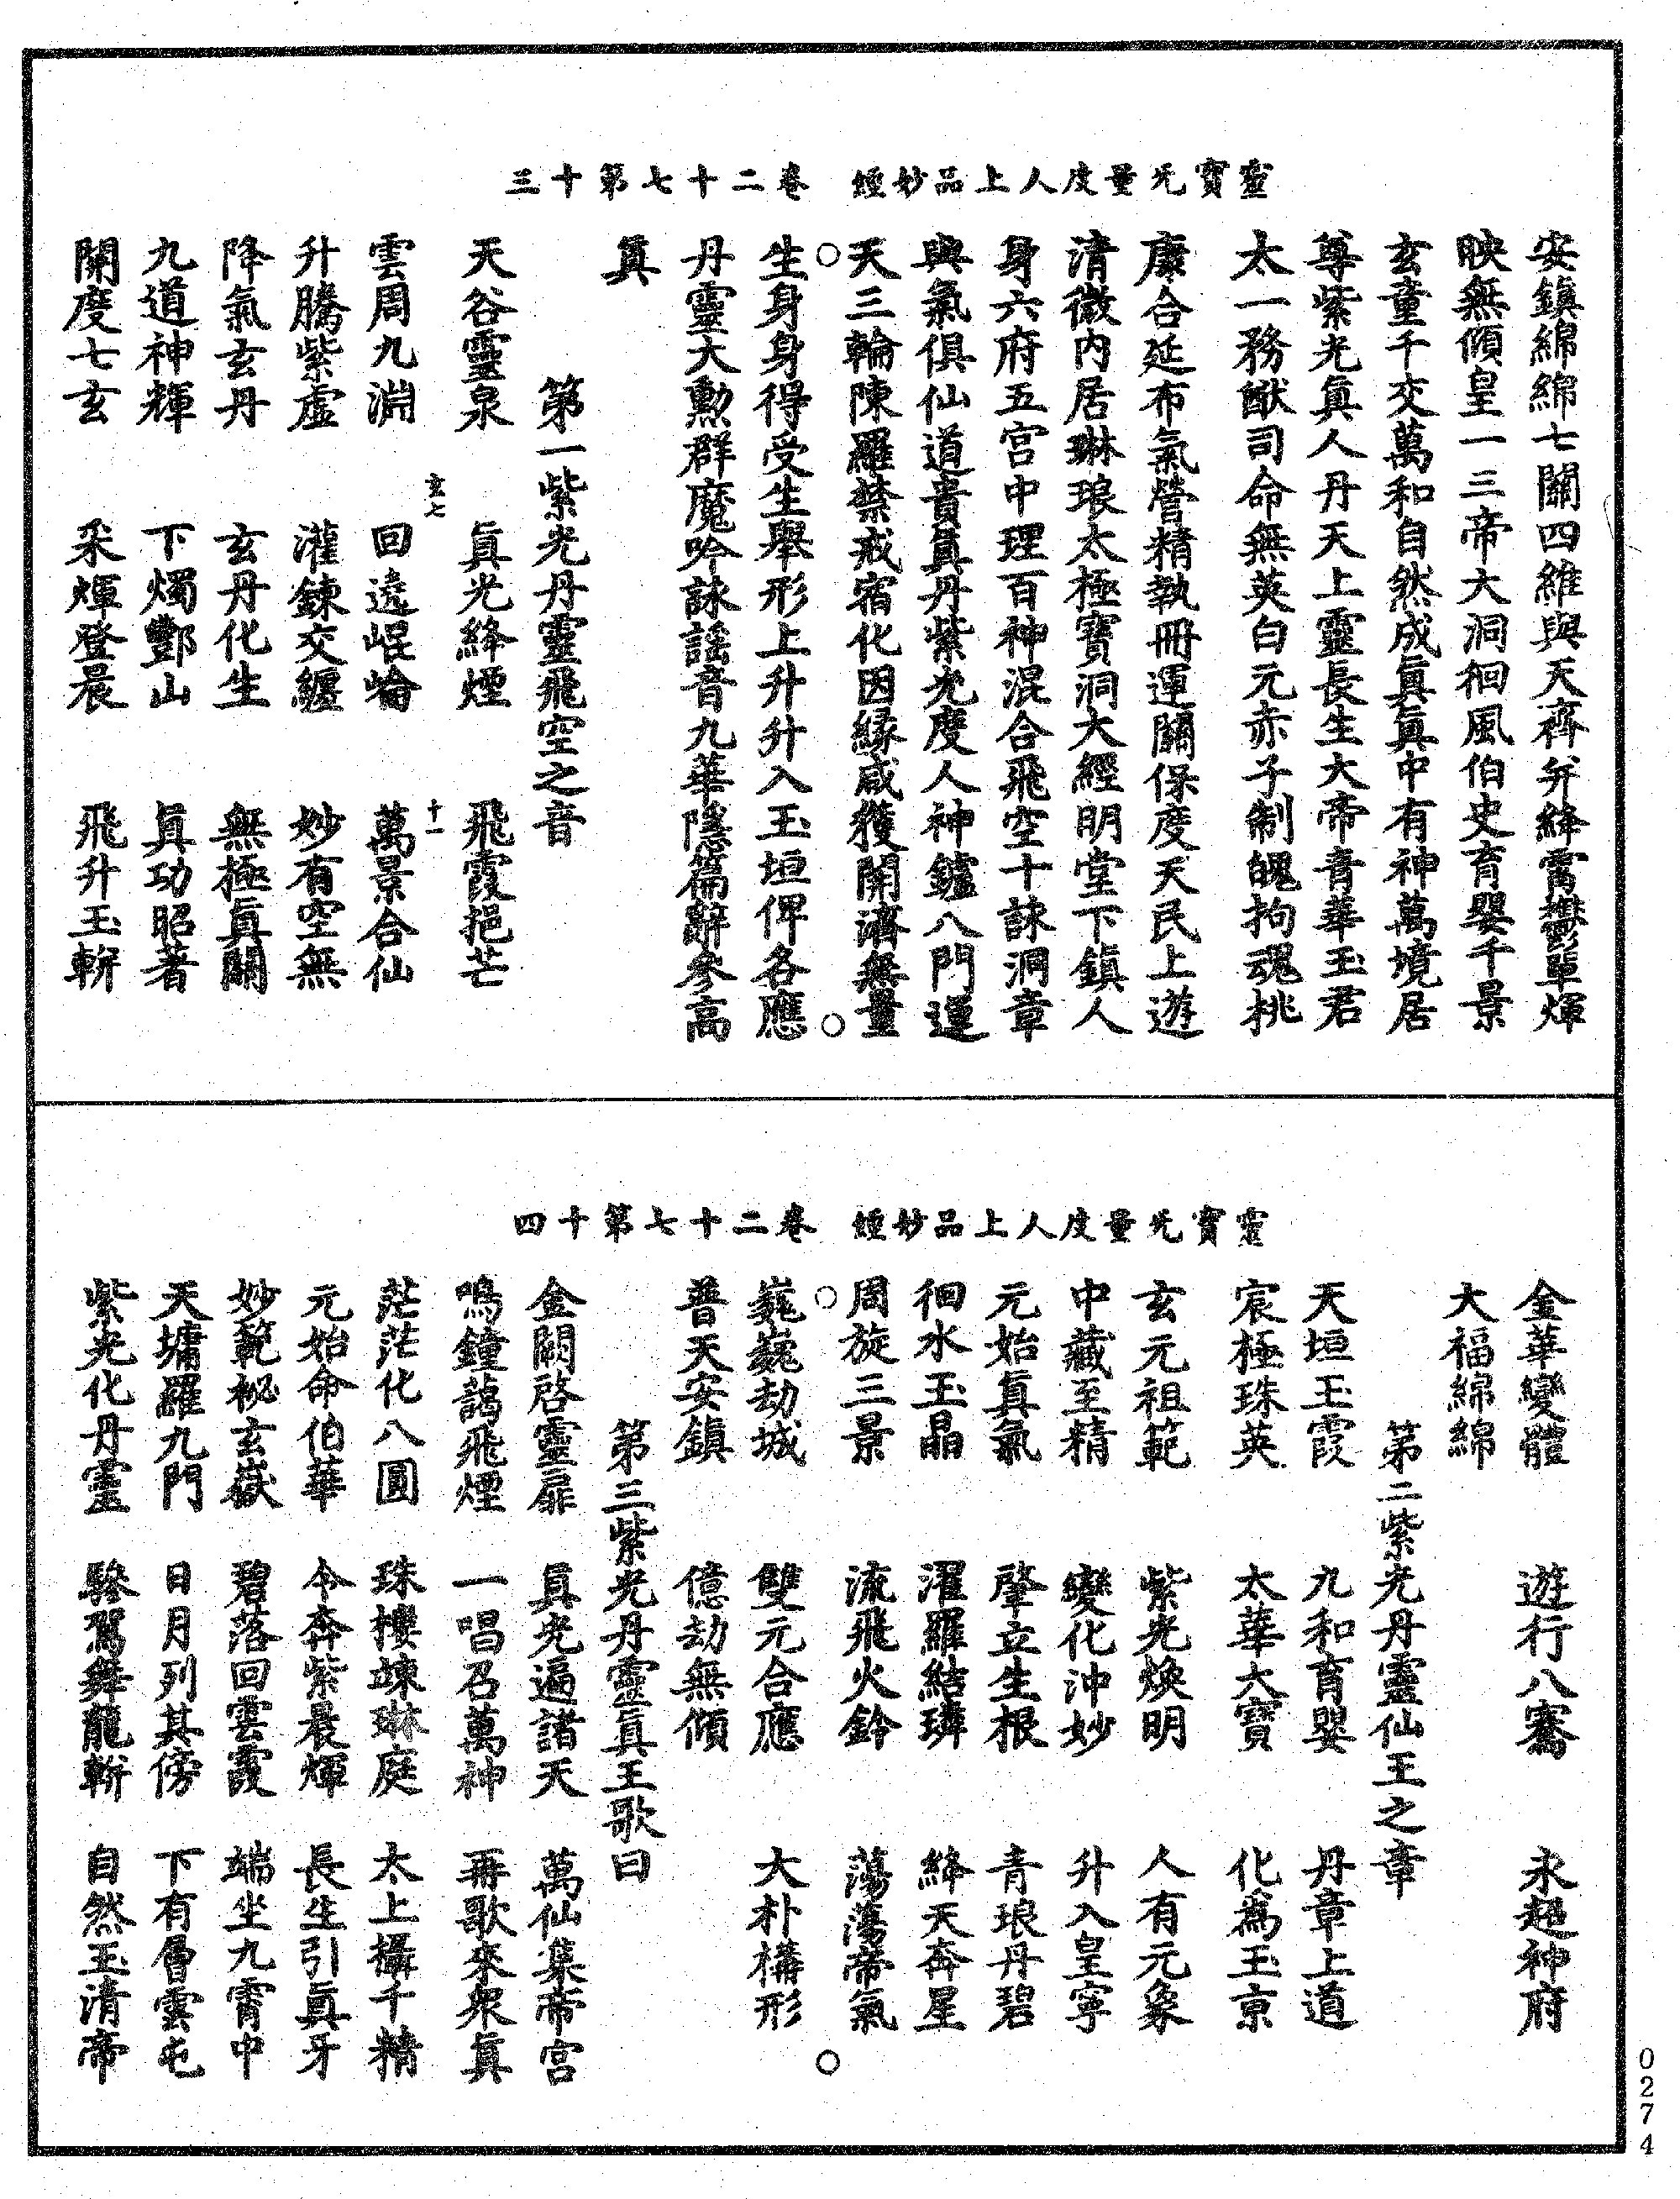 靈寶无量度人上品妙經　卷二十七第十三
安鎮綿綿七關四維與天齊并絳霄欝單煇
映無傾皇一三帝大洞徊風伯史育嬰千景
玄童千交萬和自然成眞眞中有神萬境居
尊紫光眞人丹天上靈長生大帝青華玉君
太一務猷司命無英白元赤子制魄拘魂桃
康合延布氣營精執冊運關保度天民上遊
清微内居琳琅太極寶洞大經明堂下鎮人
身六府五宮中理百神混合飛空十詠洞章
與氣俱仙道貴眞丹紫光度人神鑪八門運
天三輪陳羅禁戒宿化因緣咸獲開濟無量
生身身得受生舉形上升升入玉垣俾各應
丹靈大勲群魔吟詠謡音九華隱篇辭參高
眞
第一紫光丹靈飛空之音
天谷靈泉　眞光絳煙　飛霞挹芒
雲周九淵　回遶崐崘　萬景合仙
玄七　十一
升騰紫虛　灌鍊交纏　妙有空無
降氣玄丹　玄丹化生　無極眞關
九道神輝　下燭酆山　眞功昭著
開度七玄　采煇登晨　飛升玉軿
靈寶无量度人上品妙經　卷二十七第十四
金華變體　遊行八騫　永超神府
大福綿綿
第二紫光丹靈仙王之章
天垣玉霞　九和育嬰　丹章上道
宸極珠英　太華大寶　化為玉京
玄元祖範　紫光煥明　人有元象
中藏至精　變化沖妙　升入皇寧
元始眞氣　肇立生根　青琅丹碧
徊水玉晶　濯羅結璘　絳天奔星
周旋三景　流飛火鈴　蕩蕩帝氣
巍巍劫城　雙元合應　大朴構形
普天安鎮　億劫無傾
第三紫光丹靈眞王歌曰
金闕啓靈扉　眞光遍諸天　萬仙集帝宮
鳴鐘藹飛煙　一唱召萬神　再歌來衆眞
茫茫化八圓　珠樓竦琳庭　太上攝千精
元始命伯華　令奔紫晨煇　長生引眞牙
妙範祕玄嶽　碧落回雲霞　端坐九霄中
天墉羅九門　日月列其傍　下有層雲屯
紫光化丹靈　驂駕舞龍軿　自然玉清帝
0274